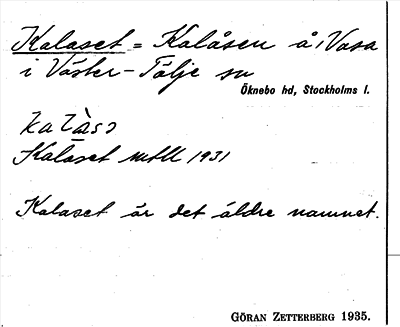 Kalaset = Kalåsen å, Vasa
i Väster-Tälje sn
Öknebo hd, Stockholms l.
Kalaset mtll 1931
Kalaset är det äldre namnet.
GÖRAN ZETTERBERG 1935.